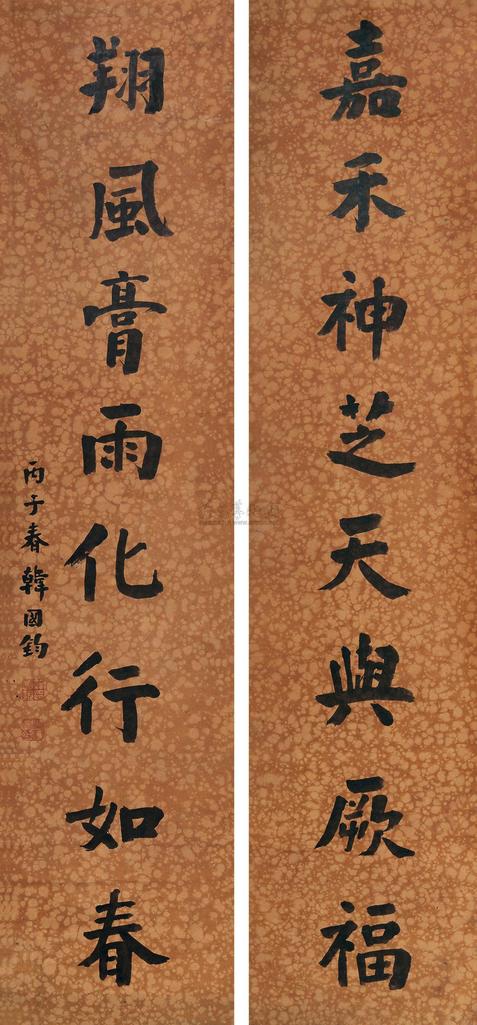 嘉禾神芝天與厥福
翔風膏雨化行如春
丙子春韓國鈞